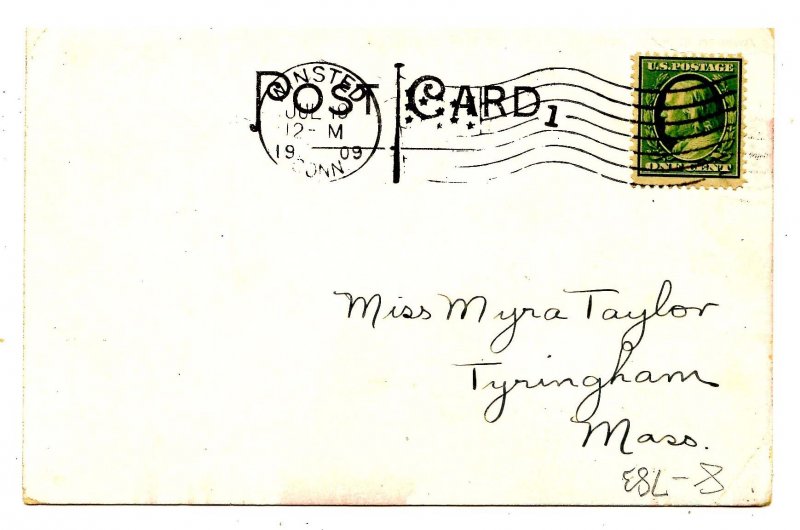 POST CARD
WINSTED
JUL 19
12-M
1909
CONN
1
U.S. POSTAGE
ONE CENT
Miss Myra Taylor
Tyringham
Mass.